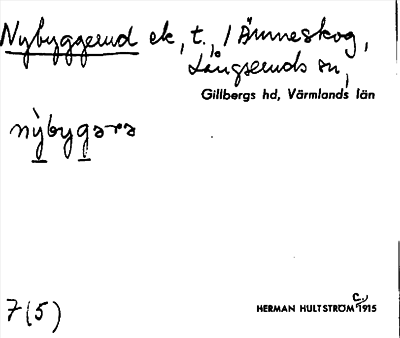 Nybyggerud ek, t. / Ånneskog,
Långseruds sn,
Gillbergs hd, Värmlands län
nỳbygərə
7(5)
HERMAN HULTSTRÖM c. 1915